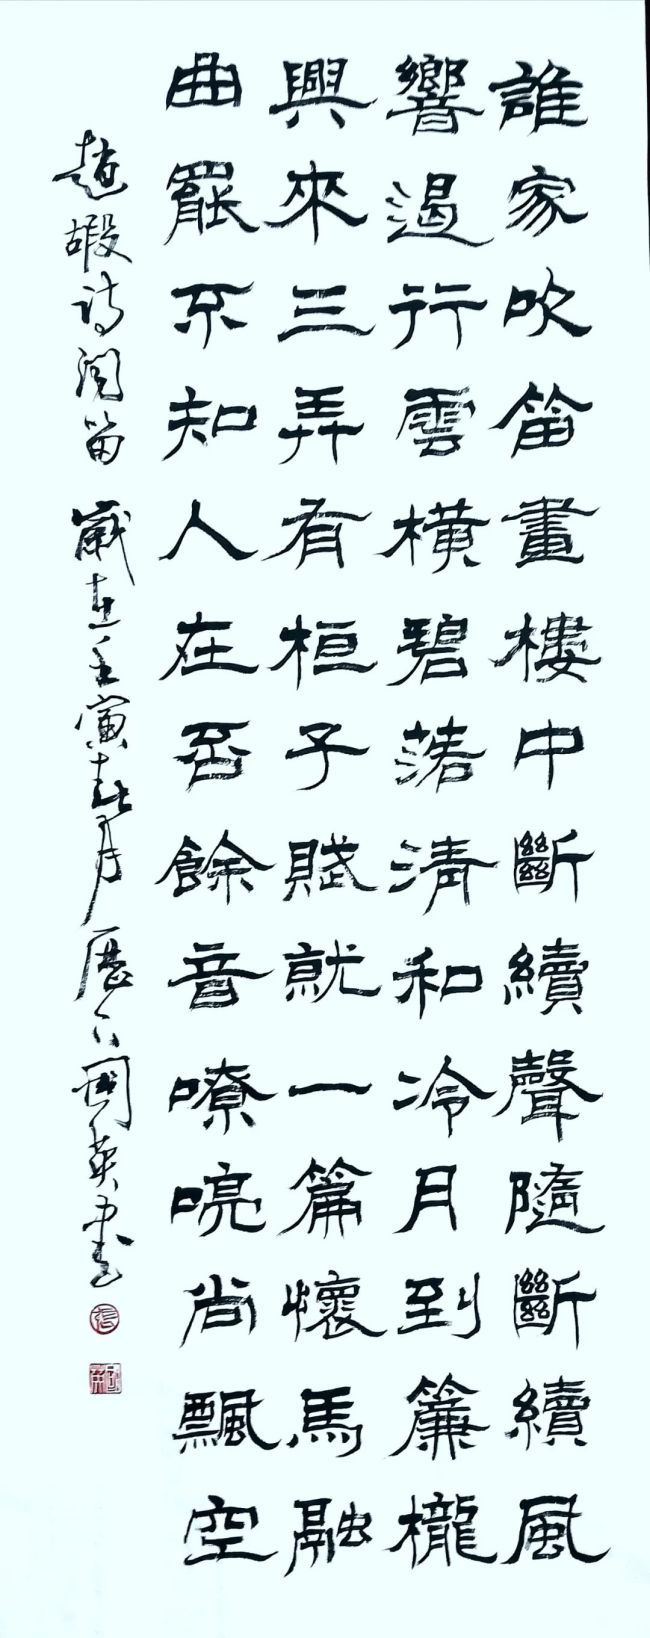 誰家吹笛畫樓中斷續聲隨斷續風
響遏行雲橫碧落清和冷月到簾櫳
興來三弄有桓子賦就一篇懷馬融
曲罷不知人在否餘音嘹喨尚飄空
趙嘏诗闻笛 歲在壬寅春月歷下國英書